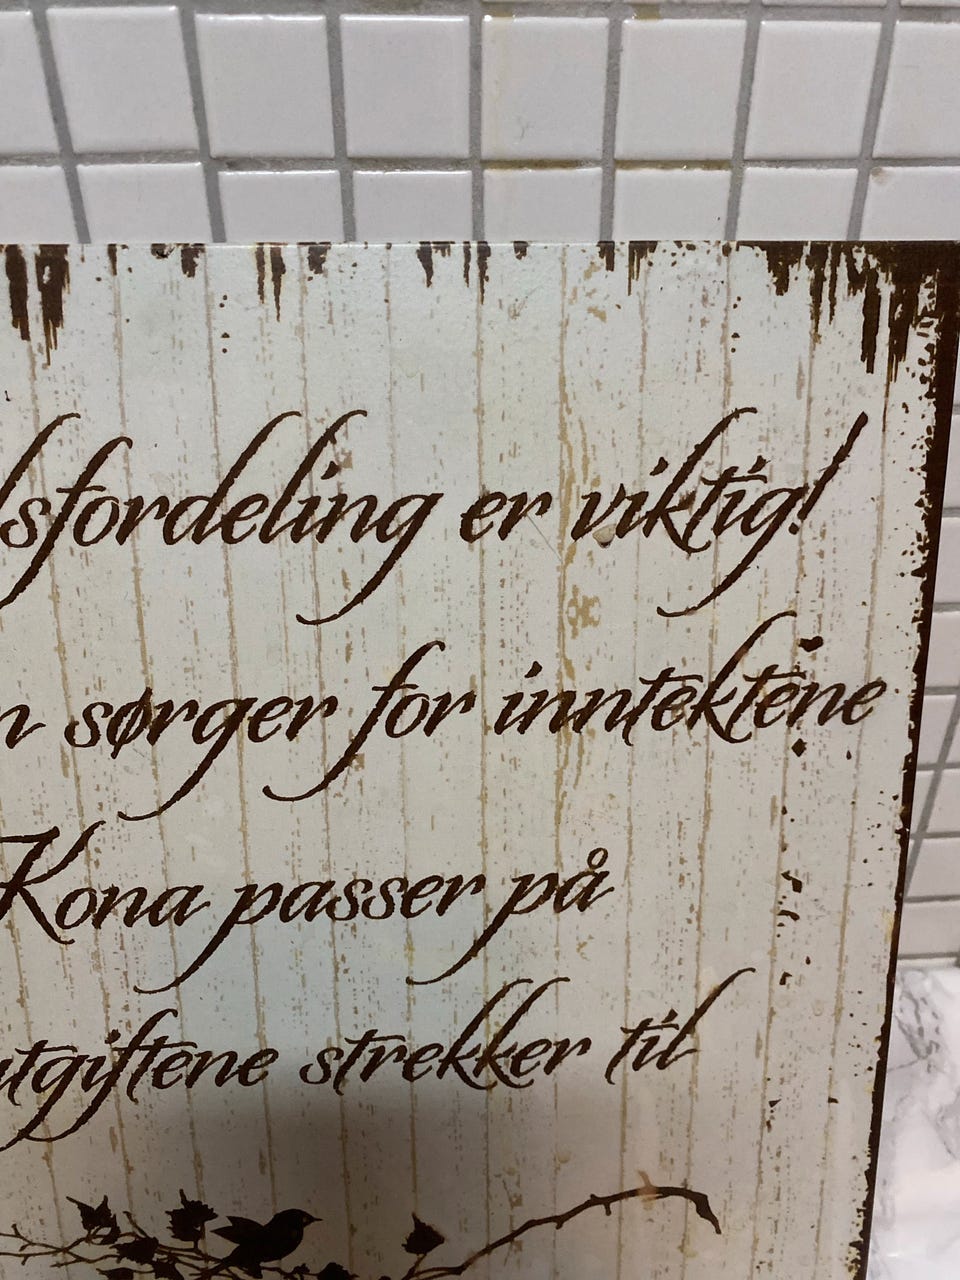 sfordeling er viktig!
n sørger for inntektene
Kona passer på
utgiftene strekker til